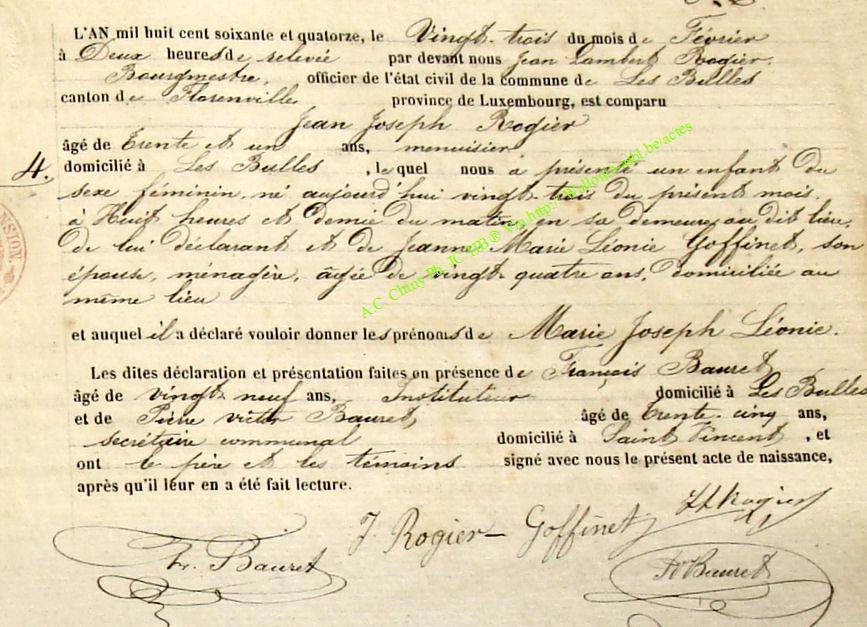 L'AN mil huit cent soixante et quatorze, le Vingt-trois du mois de Février
à Deux heures de relevée par devant nous Jean Lambert Rogier,
Bourgmestre, officier de l'état civil de la commune de Les Bulles
canton de Florenville province de Luxembourg, est comparu
Jean Joseph Rogier
âgé de Trente et un ans, menuisier
4. domicilié à Les Bulles , lequel nous a présenté un enfant du
sexe féminin, né aujourd'hui vingt-trois du présent mois,
à Huit heures et demie du matin, en sa demeure au dit lieu,
de lui déclarant et de Jeanne Marie Léonie Goffinet, son
épouse, ménagère, âgée de vingt-quatre ans, domiciliée au
même lieu
et auquel il a déclaré vouloir donner les prénoms de Marie Joseph Léonie.
Les dites déclaration et présentation faites en présence de François Bauret
âgé de vingt neuf ans, Instituteur domicilié à Les Bulles
et de Pierre victor Bauret, âgé de Trente-cinq ans,
secrétaire communal domicilié à Saint Vincent , et
ont le père et les témoins signé avec nous le présent acte de naissance,
après qu'il leur en a été fait lecture.
J. Rogier-Goffinet
Rogier
Fr. Bauret
Bauret
NSION.
A.C. Chiny